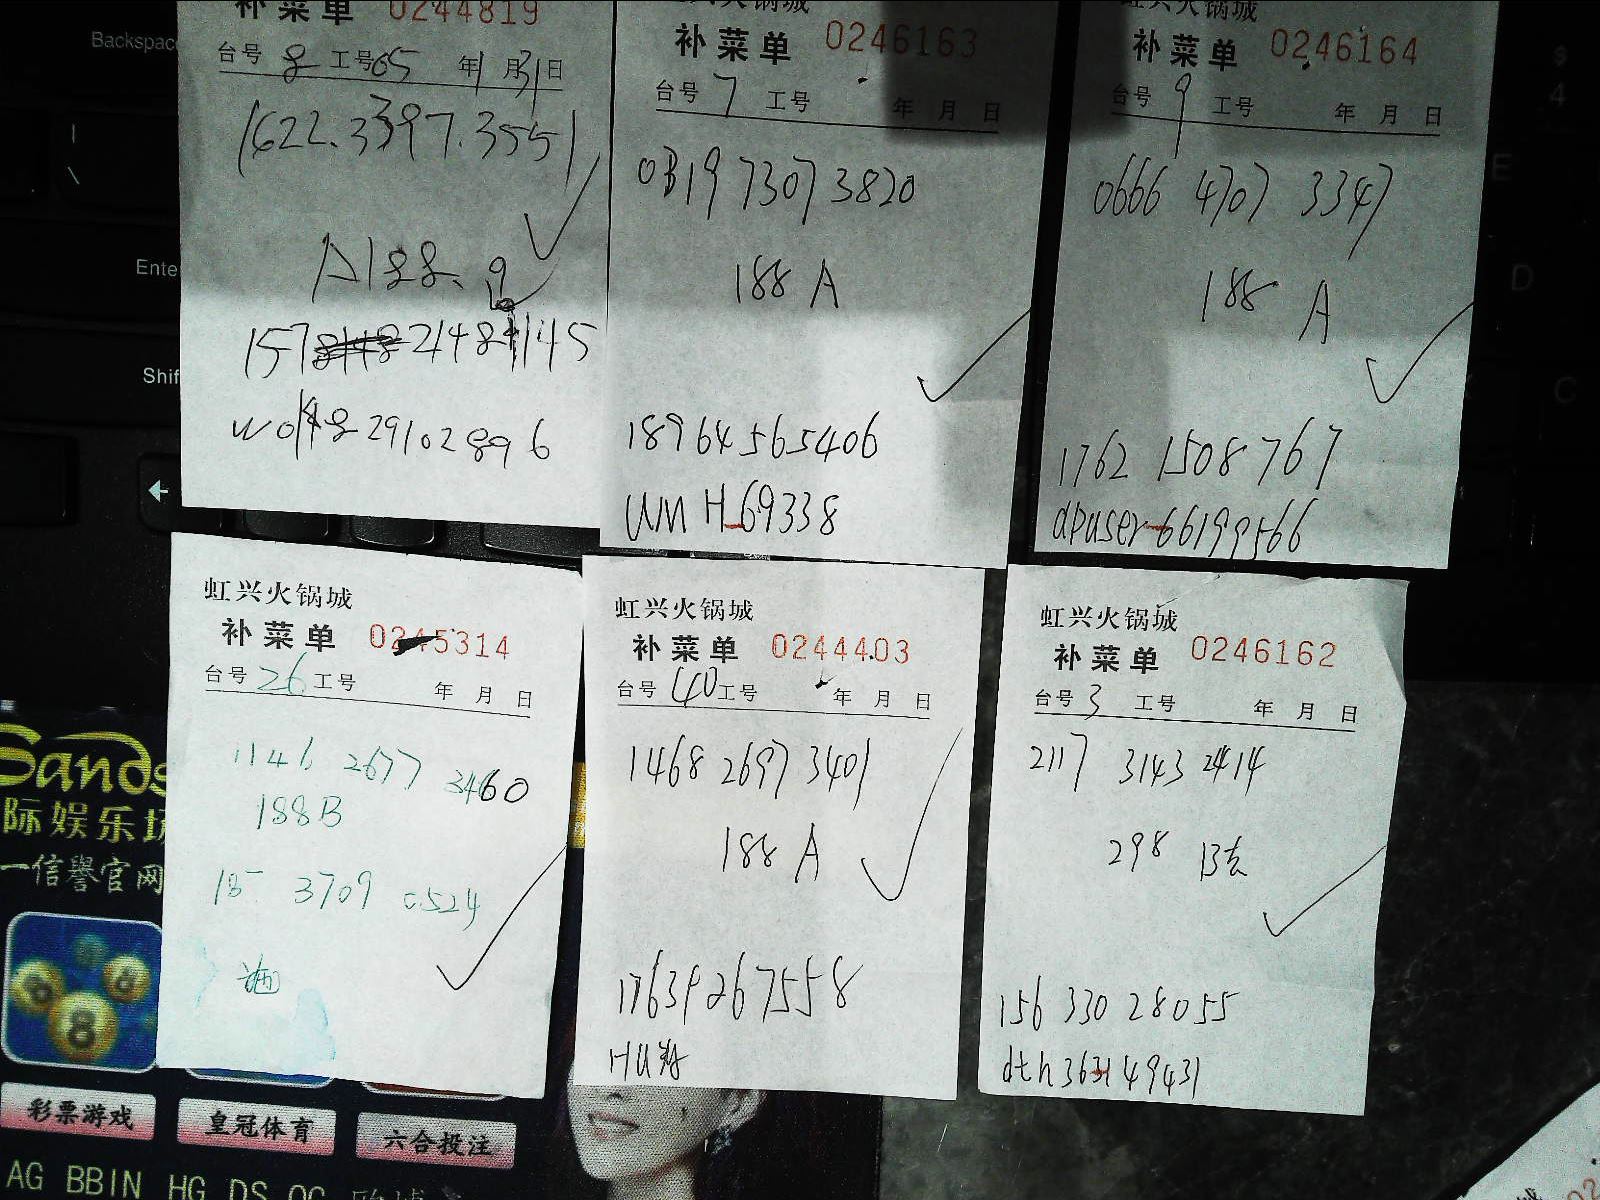 补菜单 0244819
台号 8 工号 65 年 1 月 31 日
1622.3397.3551
A188. 9
虹兴火锅城
补菜单 0246163
台号 7 工号 年 月 日
0819 7307 3820
188 A
18964565406
WMH_69338
虹兴火锅城
补菜单 0246164
台号 9 工号 年 月 日
0666 4707 3347
188 A
1762 1508 767
dpuser-66199566
虹兴火锅城
补菜单 0245314
台号 26 工号 年 月 日
1146 2677 3460
188B
185 3709 0524
虹兴火锅城
补菜单 0244403
台号 40 工号 年 月 日
1468 2697 3401
188 A
17639267558
虹兴火锅城
补菜单 0246162
台号 3 工号 年 月 日
2117 3143 2414
298 B套
156 330 28055
Backspace
Enter
Shift
Sands
际娱乐场
一信誉官网
彩票游戏
皇冠体育
六合投注
AG BBIN HG DS OG